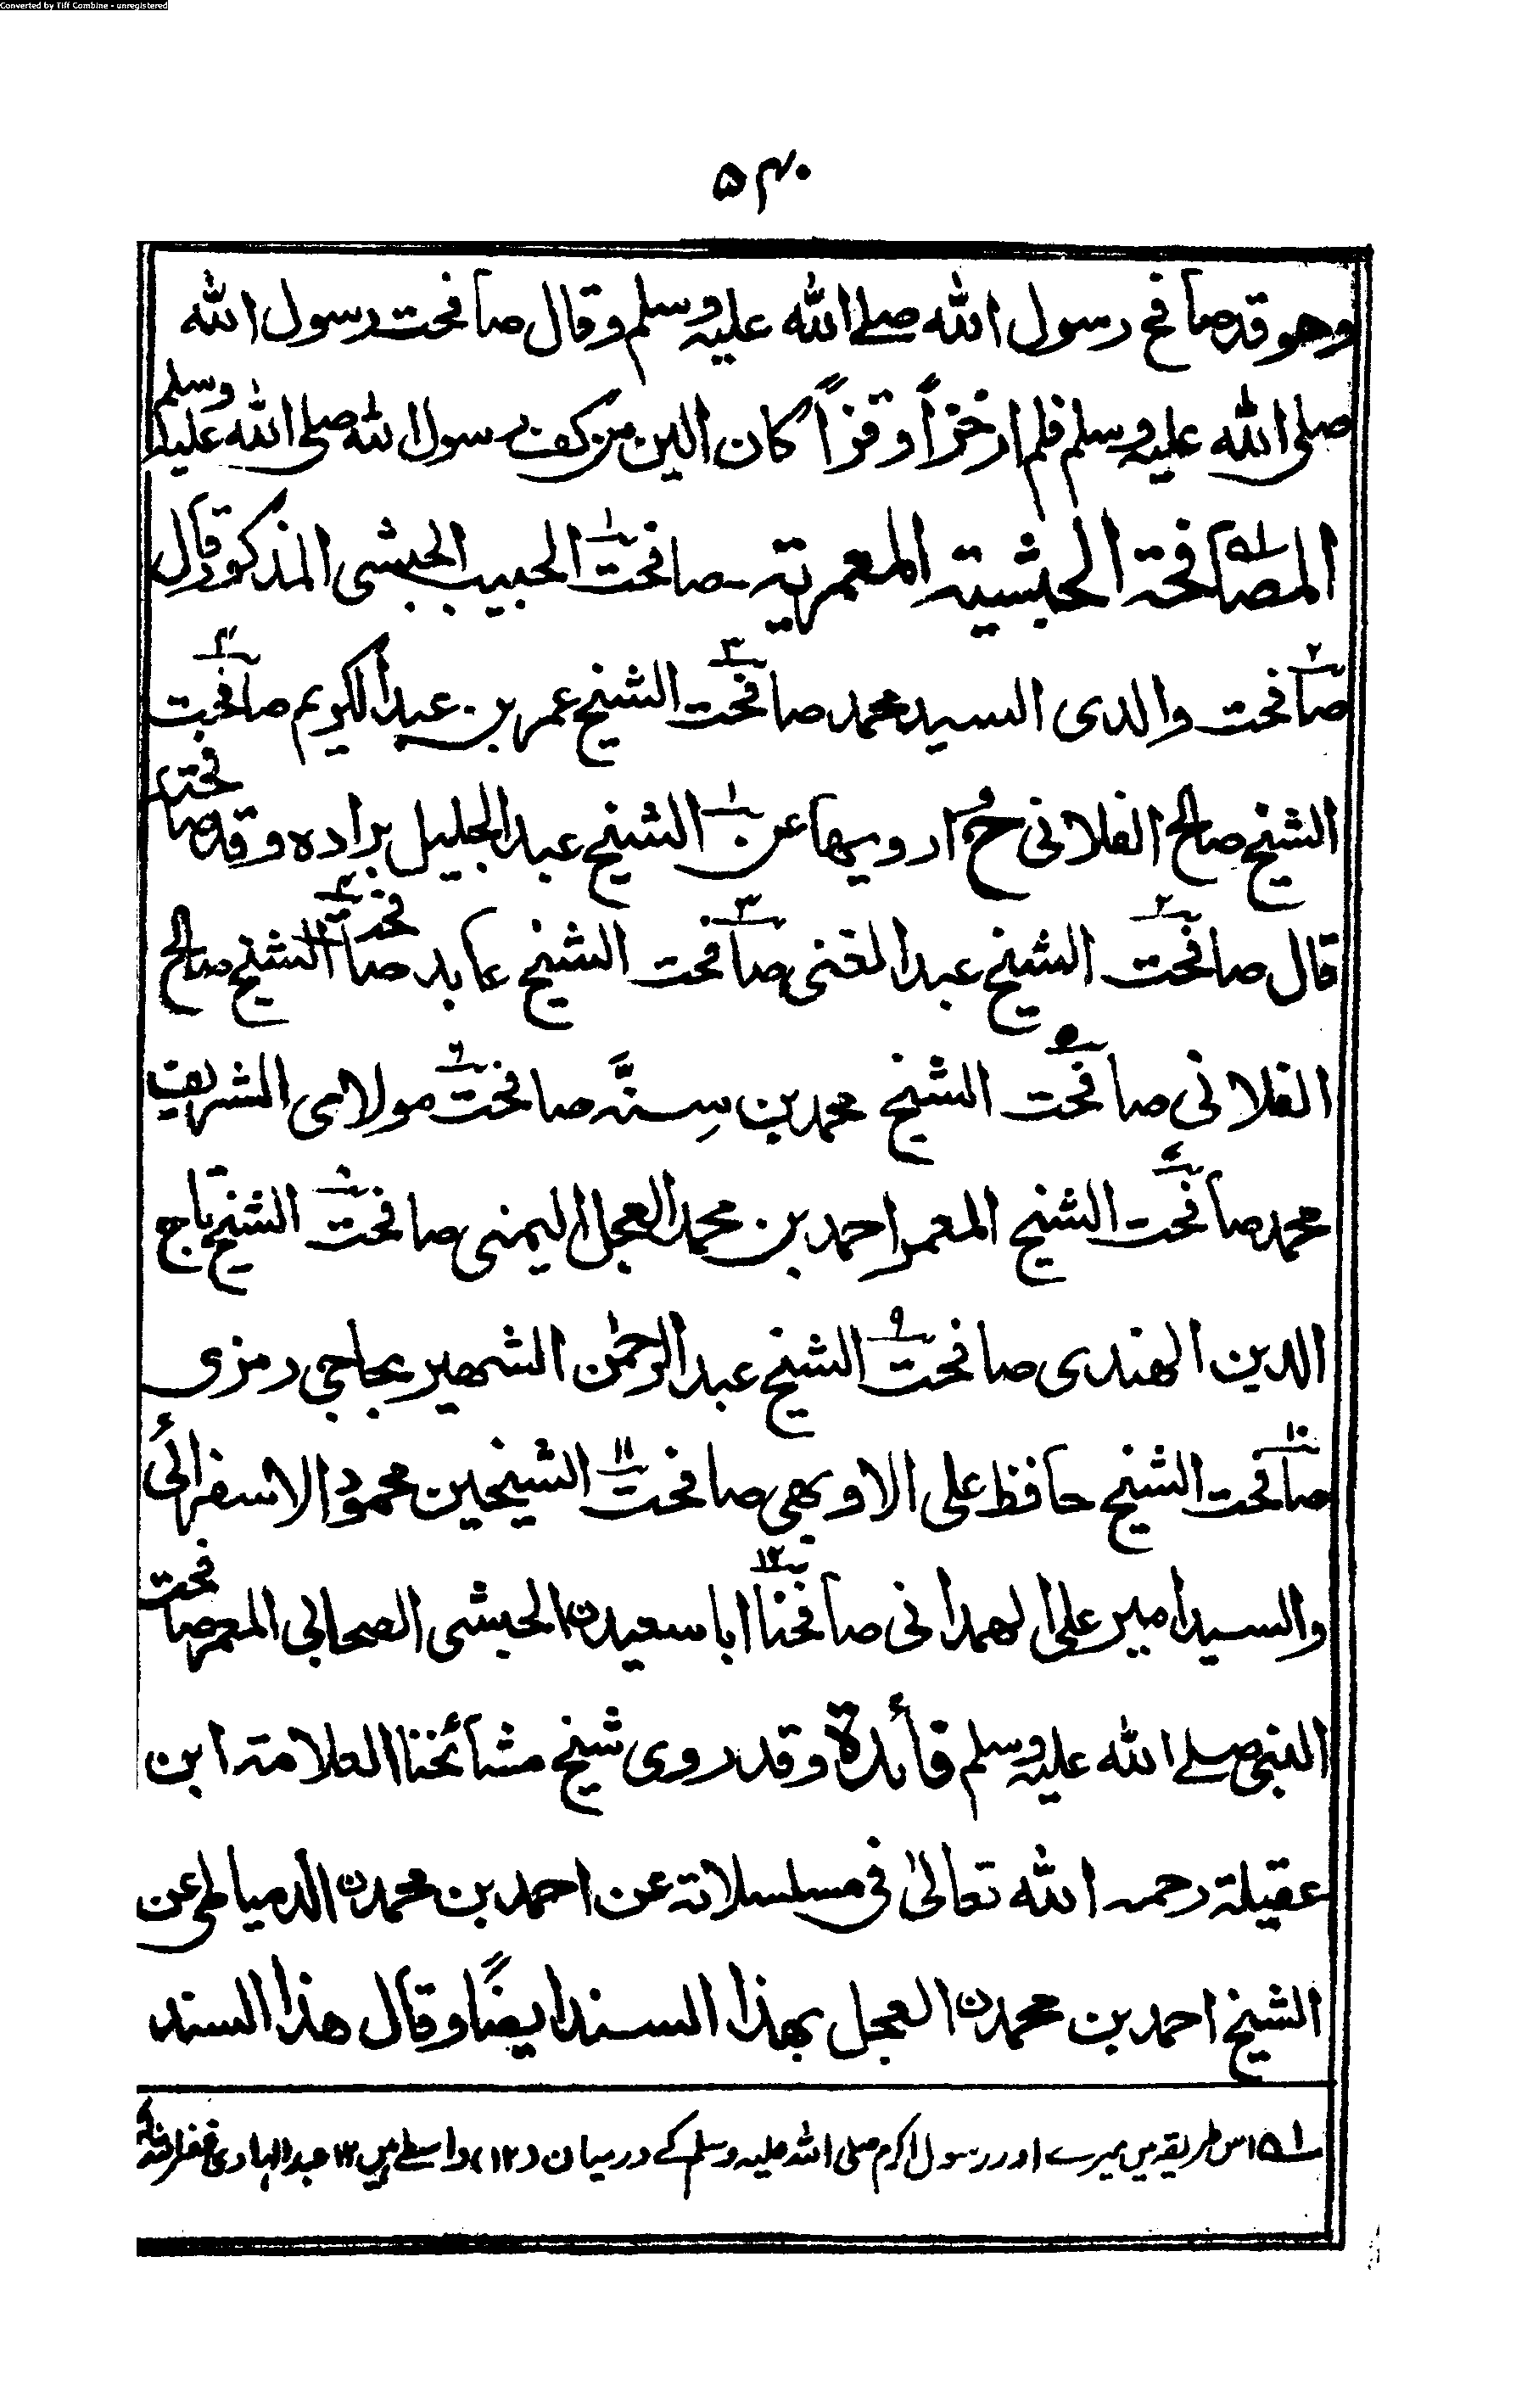 Converted by Tiff Combine - unregistered
۵۴۰
وهو قد صافح رسول الله صلے الله عليه وسلم وقال صافحت رسول الله
صلى الله عليه وسلم فلم ار خزاً و قزاً كان الين من كف رسول الله صلى الله عليه وسلم
المصافحة الحبشية المعمرية - صافحت الحبيب الحبشى المذكور قال
صافحت والدى السيد محمد صافحت الشيخ عمر بن عبد الكريم صافحت
الشيخ صالح الفلانى ح و ارويها عن الشيخ عبد الجليل براده وقد صافحته
قال صافحت الشيخ عبد الغنى صافحت الشيخ عابد صافحت الشيخ صالح
الفلانى صافحت الشيخ محمد بن سِنَّه صافحت مولامى الشريف
محمد صافحت الشيخ المعمر احمد بن محمد العجل اليمنى صافحت الشيخ تاج
الدين الهندى صافحت الشيخ عبد الرحمٰن الشهير بحاجى رمزى
صافحت الشيخ حافظ على الاوبهى صافحت الشيخين محمود الاسفرائى
والسيد امير على الهمدانى صافحنا ابا سعيدن الحبشى الصحابى المعمر صافحت
النبى صلے الله عليه وسلم فائدة وقد روى شيخ مشائخنا العلامة ابن
عقيلة رحمه الله تعالىٰ فى مسلسلاته عن احمد بن محمدن الدمياطى عن
الشيخ احمد بن محمدن العجل بهذا السند ايضًا وقال هذا السند
۵۱ اس طریقہ میں میرے اور رسول اکرم صلی اللہ علیہ وسلم کے درمیان (۱۲) واسطے ہیں ۱۲ عبد الہادی غفر اللہ لہ